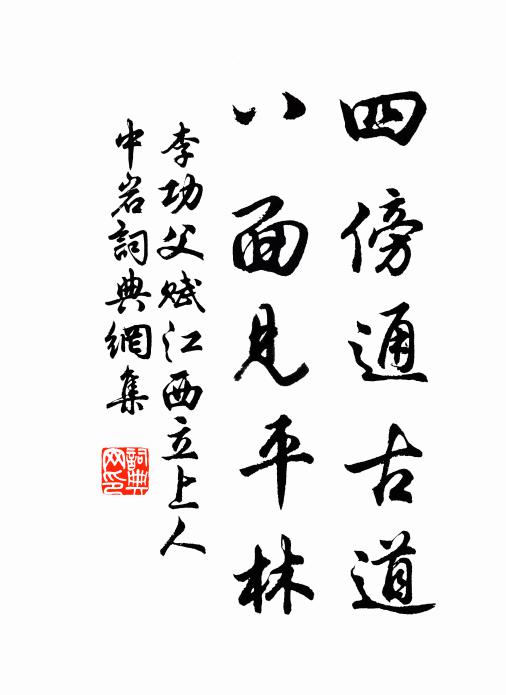 四傍通古道
八面見平林
李功父赋江西立上人
中岩詞典網集
詞典
网印